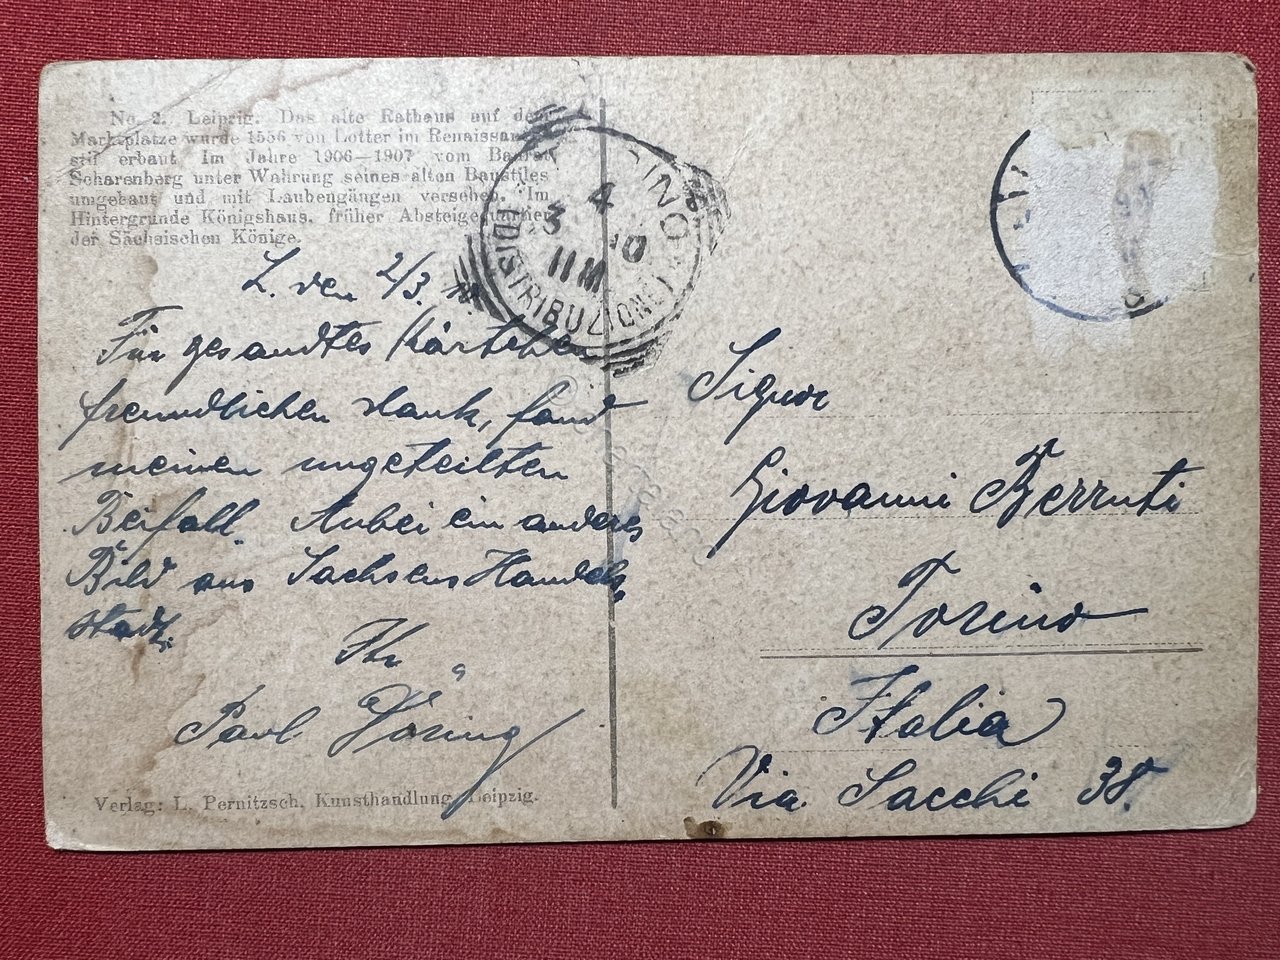 No. 2. Leipzig. Das alte Rathaus auf dem
Marktplatze wurde 1556 von Lotter im Renaissance-
stil erbaut. Im Jahre 1906—1907 vom Baurat
Scharenberg unter Wahrung seines alten Baustiles
umgebaut und mit Laubengängen versehen. Im
Hintergrunde Königshaus, früher Absteigequartier
der Sächsischen Könige.
L. den 2/3. 10.
Für gesandtes Kärtchen
freundlichen Dank, fand
meinen ungeteilten
Beifall. Anbei ein anderes
Bild aus Sachsens Handels-
stadt.
Ihr
Paul Döring
Verlag: L. Pernitzsch, Kunsthandlung, Leipzig.
4
3 10
11M
DISTRIBUZIONE
Signor
Giovanni Berruti
Torino
Italia
Via Sacchi 38.